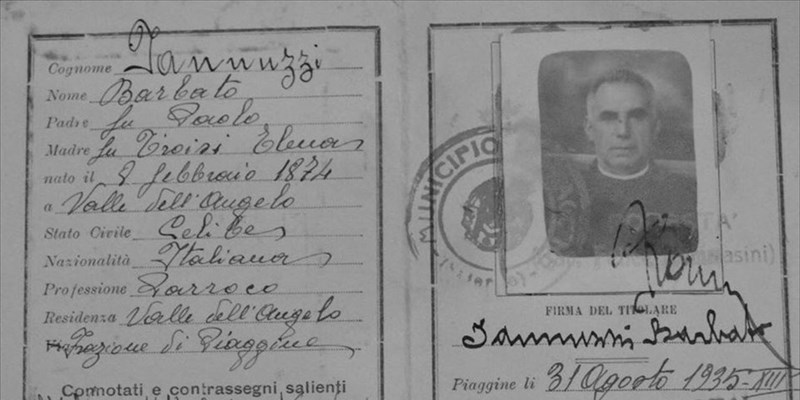 Cognome Iannuzzi
Nome Barbato
Padre fu Paolo
Madre fu Troisi Elena
nato il 2 febbraio 1874
a Valle dell'Angelo
Stato Civile Celibe
Nazionalità Italiana
Professione Parroco
Residenza Valle dell'Angelo
Frazione di Piaggine
Connotati e contrassegni salienti
MUNICIPIO
FIRMA DEL TITOLARE
Iannuzzi Barbato
Piaggine li 31 Agosto 1935-XIII